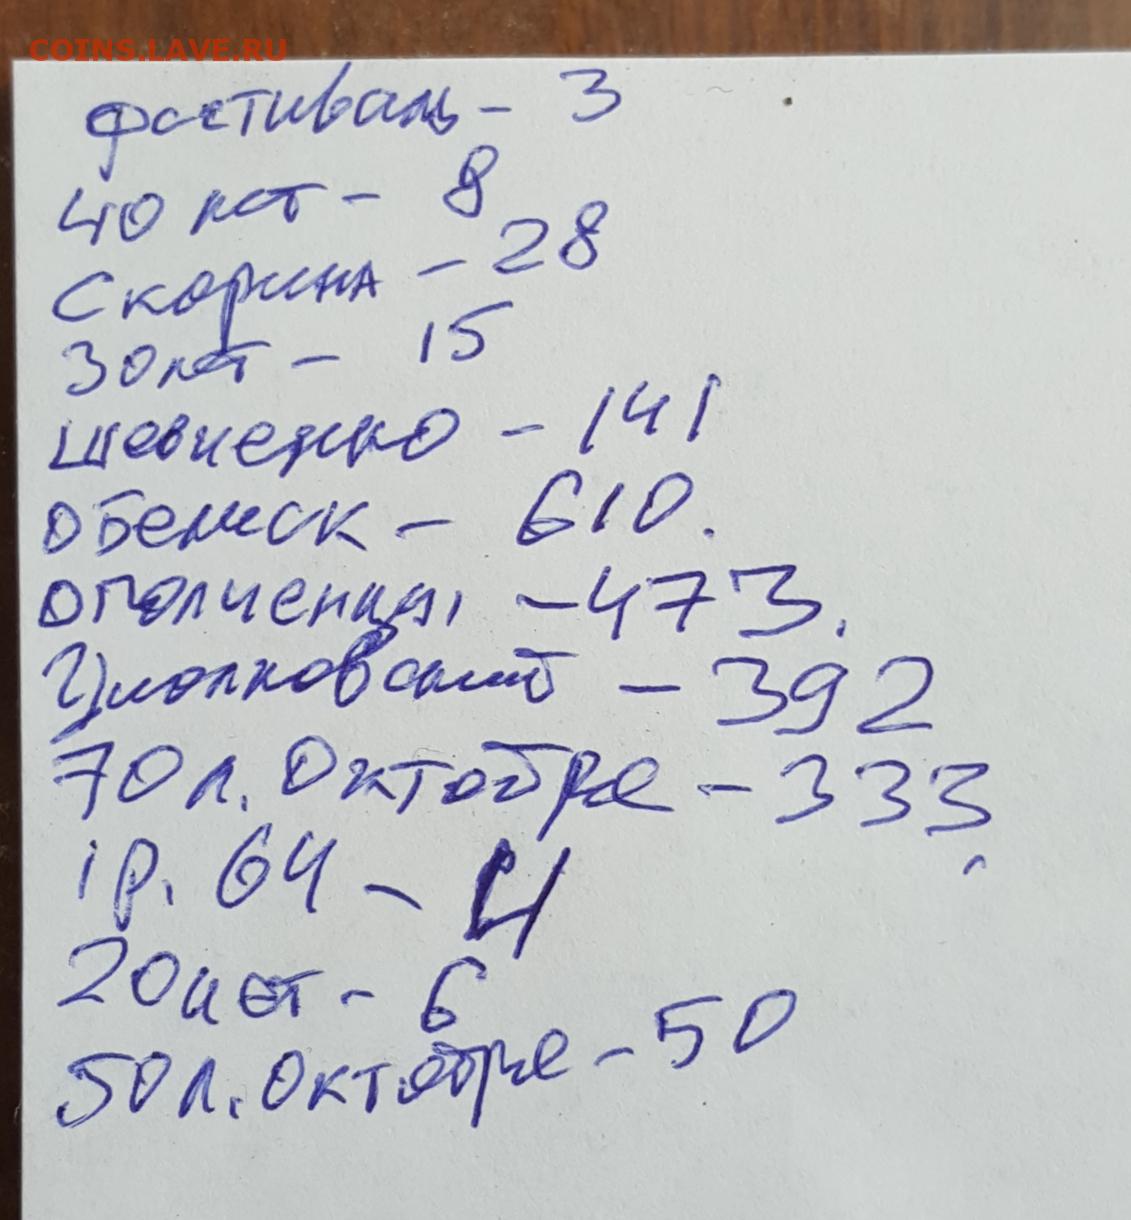 COINS.LAVE.RU
фестиваль - 3
40 лет - 8
Скорина - 28
30 лет - 15
шевченко - 141
обелиск - 610.
ополченцы - 473.
Циолковский - 392
70 л. Октября - 333.
1р. 64 - 4
20 лет - 6
50 л. Октября - 50